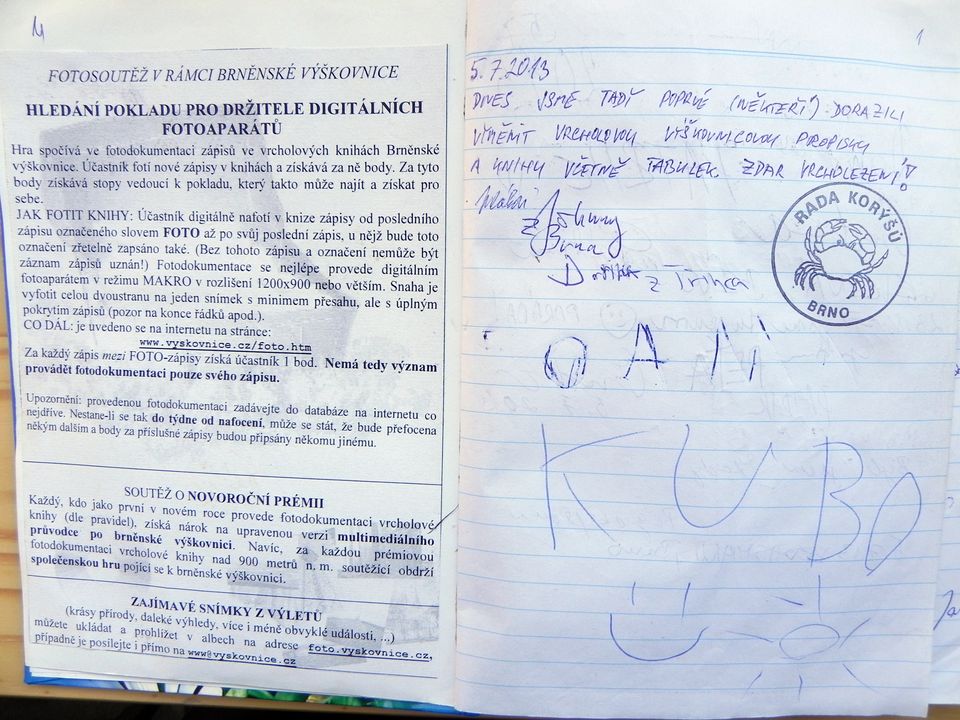 FOTOSOUTĚŽ V RÁMCI BRNĚNSKÉ VÝŠKOVNICE
HLEDÁNÍ POKLADU PRO DRŽITELE DIGITÁLNÍCH
FOTOAPARÁTŮ
Hra spočívá ve fotodokumentaci zápisů ve vrcholových knihách Brněnské
výškovnice. Účastník fotí nové zápisy v knihách a získává za ně body. Za tyto
body získává stopy vedoucí k pokladu, který takto může najít a získat pro
sebe.
JAK FOTIT KNIHY: Účastník digitálně nafotí v knize zápisy od posledního
zápisu označeného slovem FOTO až po svůj poslední zápis, u nějž bude toto
označení zřetelně zapsáno také. (Bez tohoto zápisu a označení nemůže být
záznam zápisů uznán!) Fotodokumentace se nejlépe provede digitálním
fotoaparátem v režimu MAKRO v rozlišení 1200x900 nebo větším. Snaha je
vyfotit celou dvoustranu na jeden snímek s minimem přesahu, ale s úplným
pokrytím zápisů (pozor na konce řádků apod.).
CO DÁL: je uvedeno se na internetu na stránce:
www.vyskovnice.cz/foto.htm
Za každý zápis mezi FOTO-zápisy získá účastník 1 bod. Nemá tedy význam
provádět fotodokumentaci pouze svého zápisu.
Upozornění: provedenou fotodokumentaci zadávejte do databáze na internetu co
nejdříve. Nestane-li se tak do týdne od nafocení, může se stát, že bude přefocena
někým dalším a body za příslušné zápisy budou připsány někomu jinému.
SOUTĚŽ O NOVOROČNÍ PRÉMII
Každý, kdo jako první v novém roce provede fotodokumentaci vrcholové
knihy (dle pravidel), získá nárok na upravenou verzi multimediálního
průvodce po brněnské výškovnici. Navíc, za každou prémiovou
fotodokumentaci vrcholové knihy nad 900 metrů n. m. soutěžící obdrží
společenskou hru pojící se k brněnské výškovnici.
ZAJÍMAVÉ SNÍMKY Z VÝLETŮ
(krásy přírody, daleké výhledy, více i méně obvyklé události, ...)
můžete ukládat a prohlížet v albech na adrese foto.vyskovnice.cz,
případně je posílejte i přímo na www@vyskovnice.cz
1
5.7.2013
DNES JSME TADY POPRVÉ (NĚKTEŘÍ) DORAZILI
VYMĚNIT VRCHOLOVOU VÝŠKOVNICOVOU PROPISKU
A KNIHU VČETNĚ TABULEK. ZDAR VRCHOLEZENÍ!
z Brna
z Třince
RADA KORÝŠŮ
BRNO
KUBO